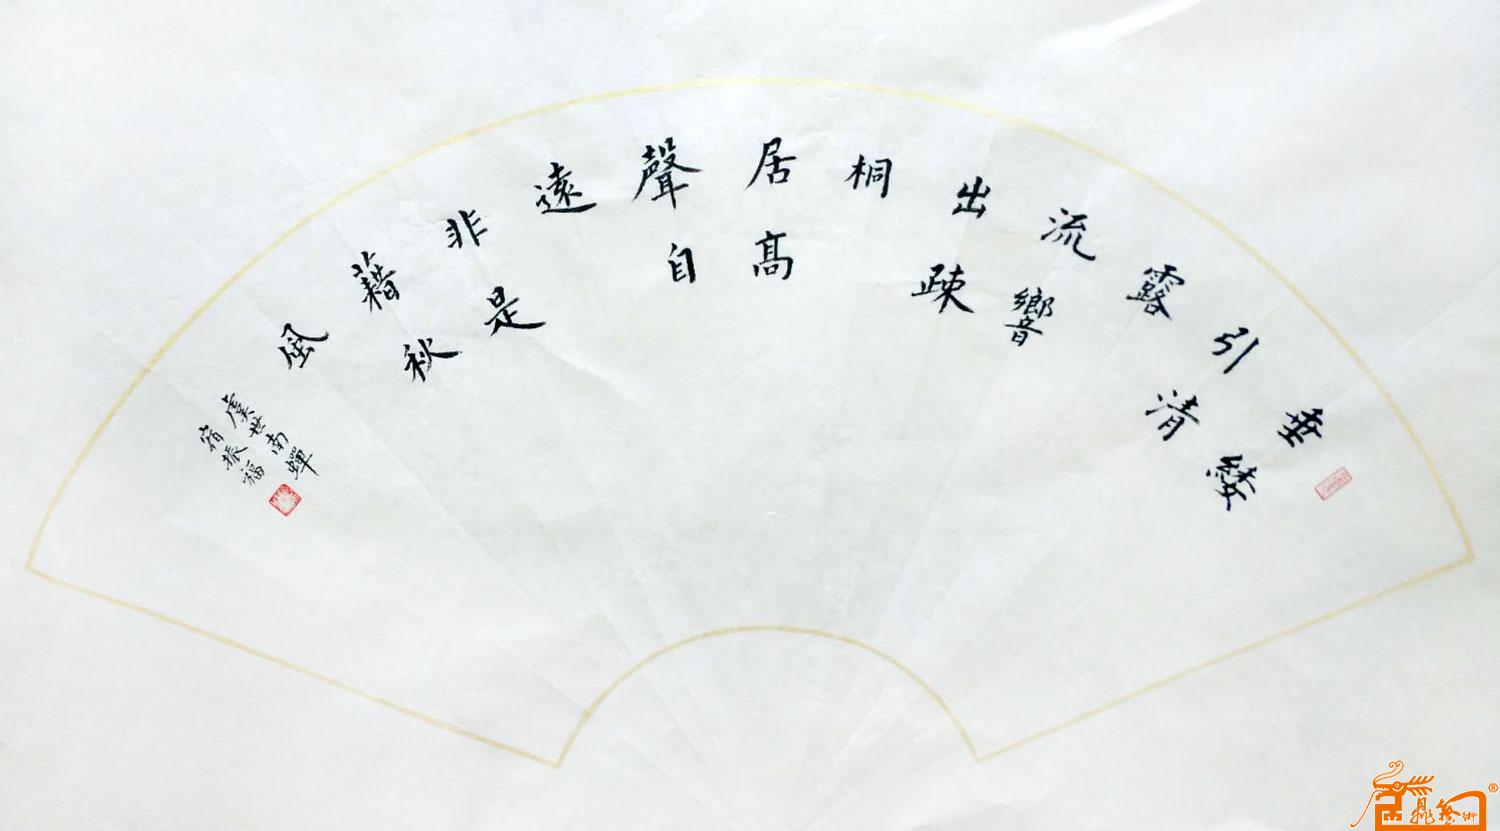 垂緌
引清
露
流響
出疎
桐
居髙
聲自
遠
非是
藉秋
風
虞世南蟬
宿振福